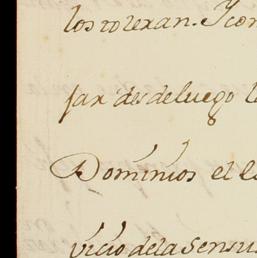 los tolexan. Y con
jax desdeluego l
Dominios el l
vicio dela Sensu